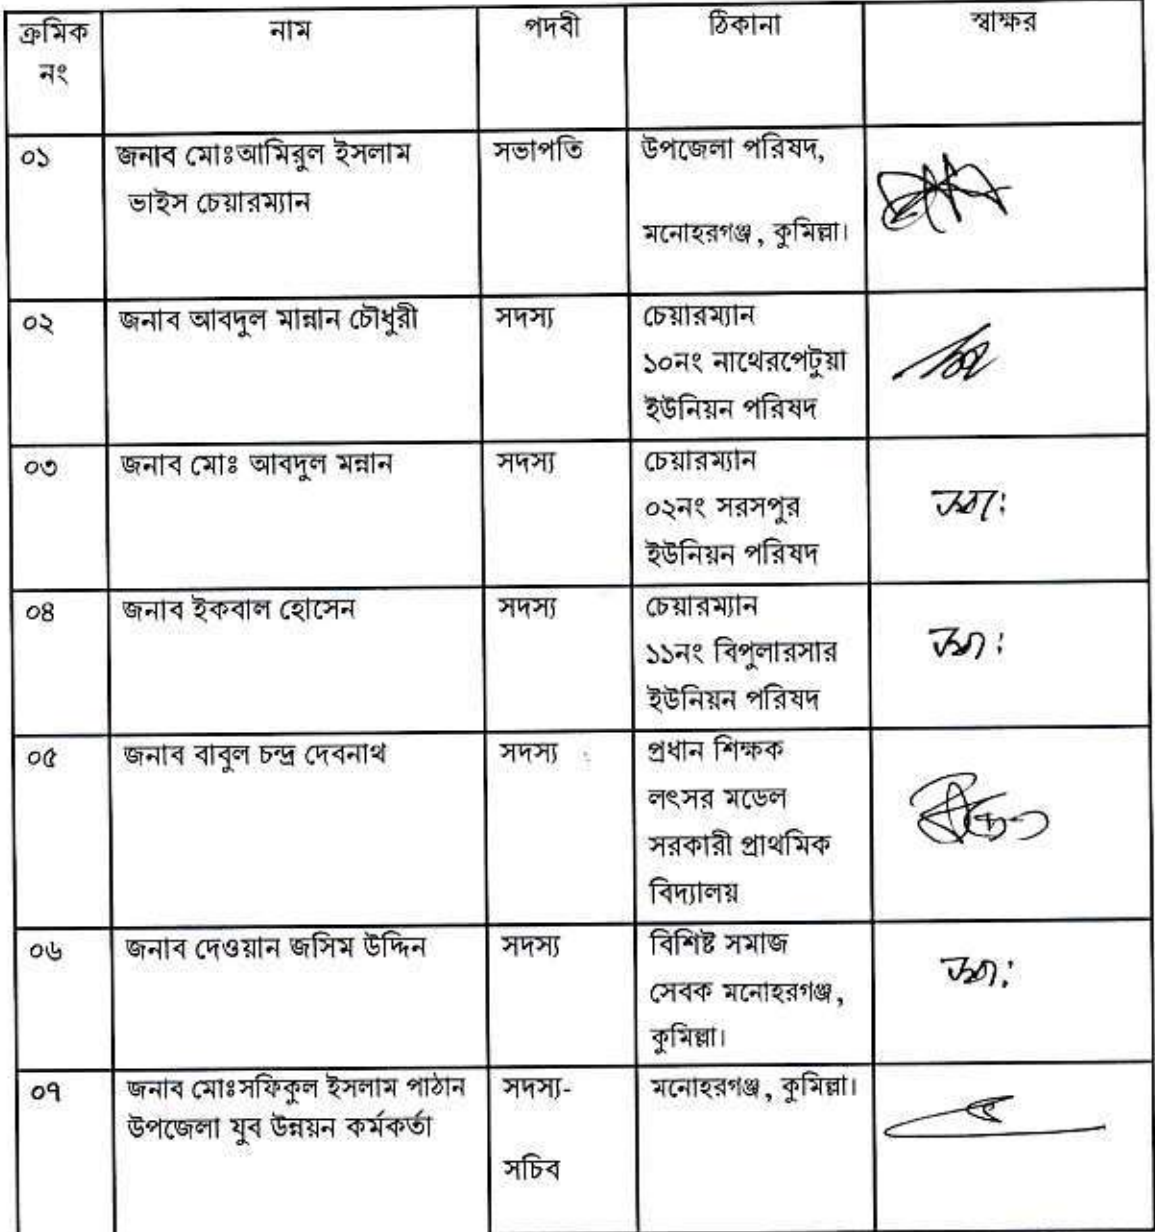 ক্রমিক নাম পদবী ঠিকানা স্বাক্ষর
নং
০১ জনাব মোঃআমিরুল ইসলাম সভাপতি উপজেলা পরিষদ,
ভাইস চেয়ারম্যান
মনোহরগঞ্জ, কুমিল্লা।
০২ জনাব আবদুল মান্নান চৌধুরী সদস্য চেয়ারম্যান
১০নং নাথেরপেটুয়া
ইউনিয়ন পরিষদ
০৩ জনাব মোঃ আবদুল মন্নান সদস্য চেয়ারম্যান
০২নং সরসপুর
ইউনিয়ন পরিষদ
০৪ জনাব ইকবাল হোসেন সদস্য চেয়ারম্যান
১১নং বিপুলারসার
ইউনিয়ন পরিষদ
০৫ জনাব বাবুল চন্দ্র দেবনাথ সদস্য প্রধান শিক্ষক
লৎসর মডেল
সরকারী প্রাথমিক
বিদ্যালয়
০৬ জনাব দেওয়ান জসিম উদ্দিন সদস্য বিশিষ্ট সমাজ
সেবক মনোহরগঞ্জ,
কুমিল্লা।
০৭ জনাব মোঃসফিকুল ইসলাম পাঠান সদস্য- মনোহরগঞ্জ, কুমিল্লা।
উপজেলা যুব উন্নয়ন কর্মকর্তা
সচিব